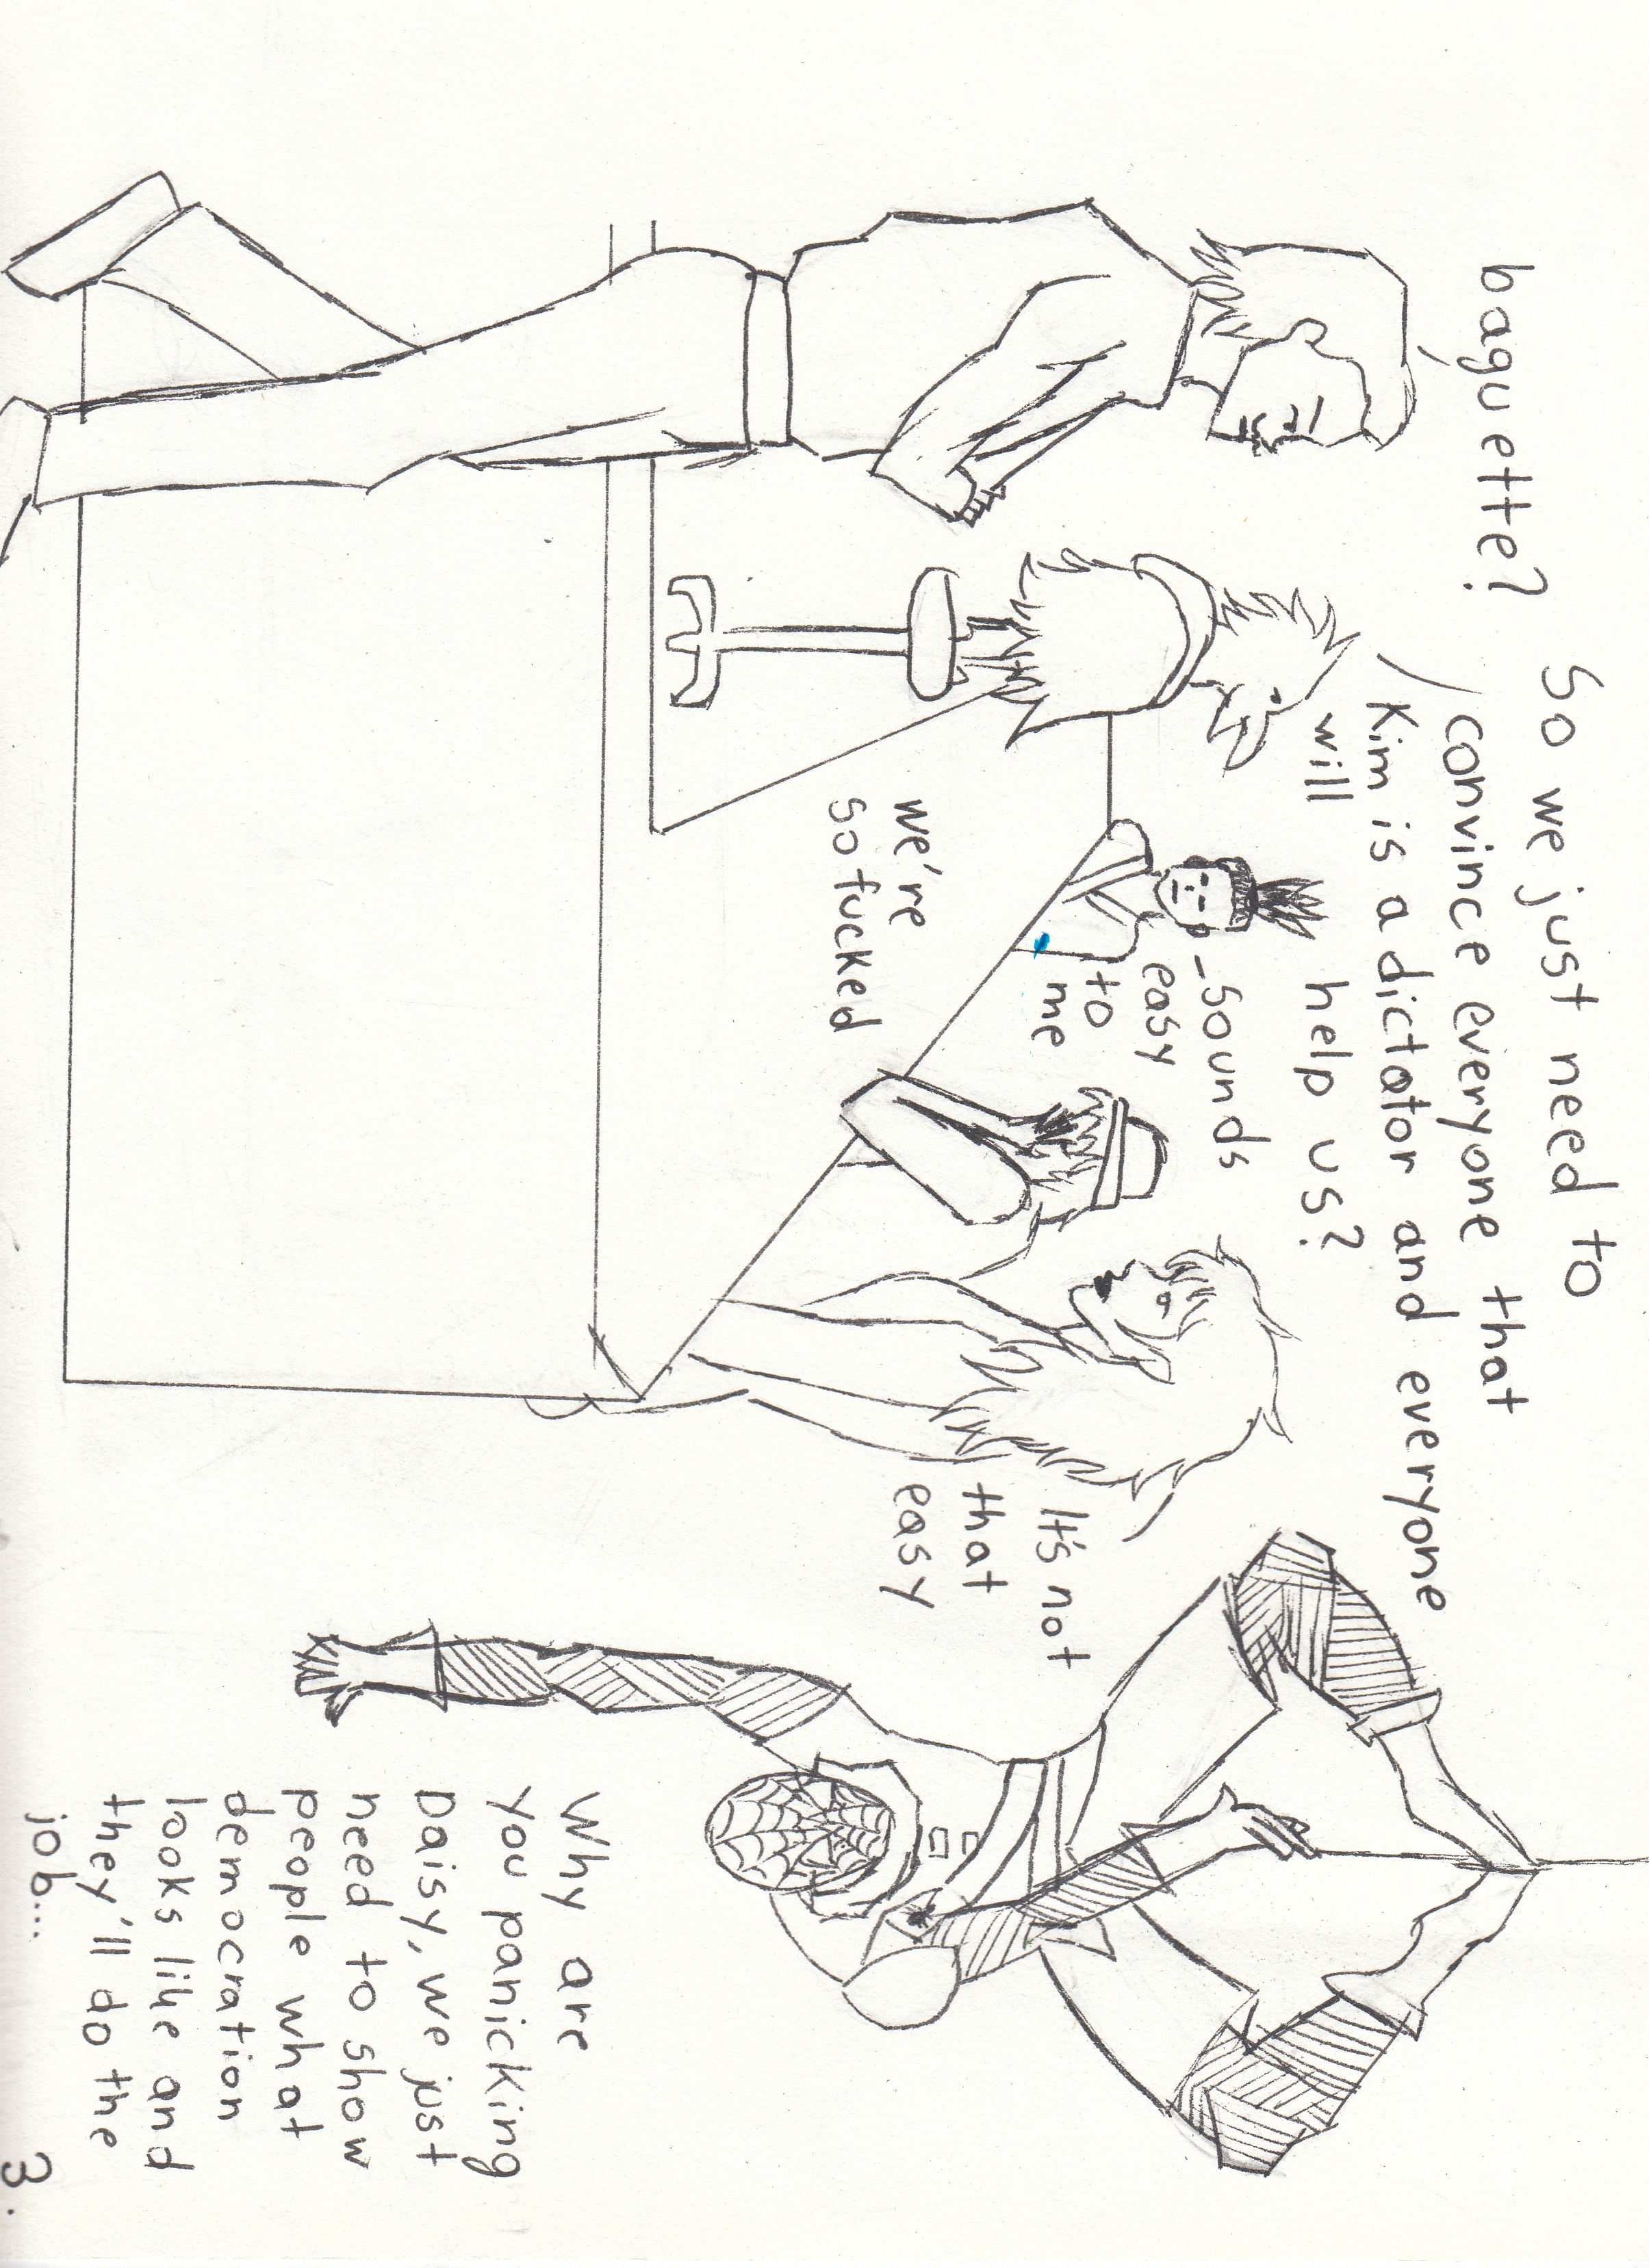 baguette?
So we just need to
convince everyone that
Kim is a dictator and everyone
will help us?
-Sounds
easy
to
me
we're
so fucked
It's not
that
easy
Why are
you panicking
Daisy, we just
need to show
people what
democration
looks like and
they'll do the
job....
3.